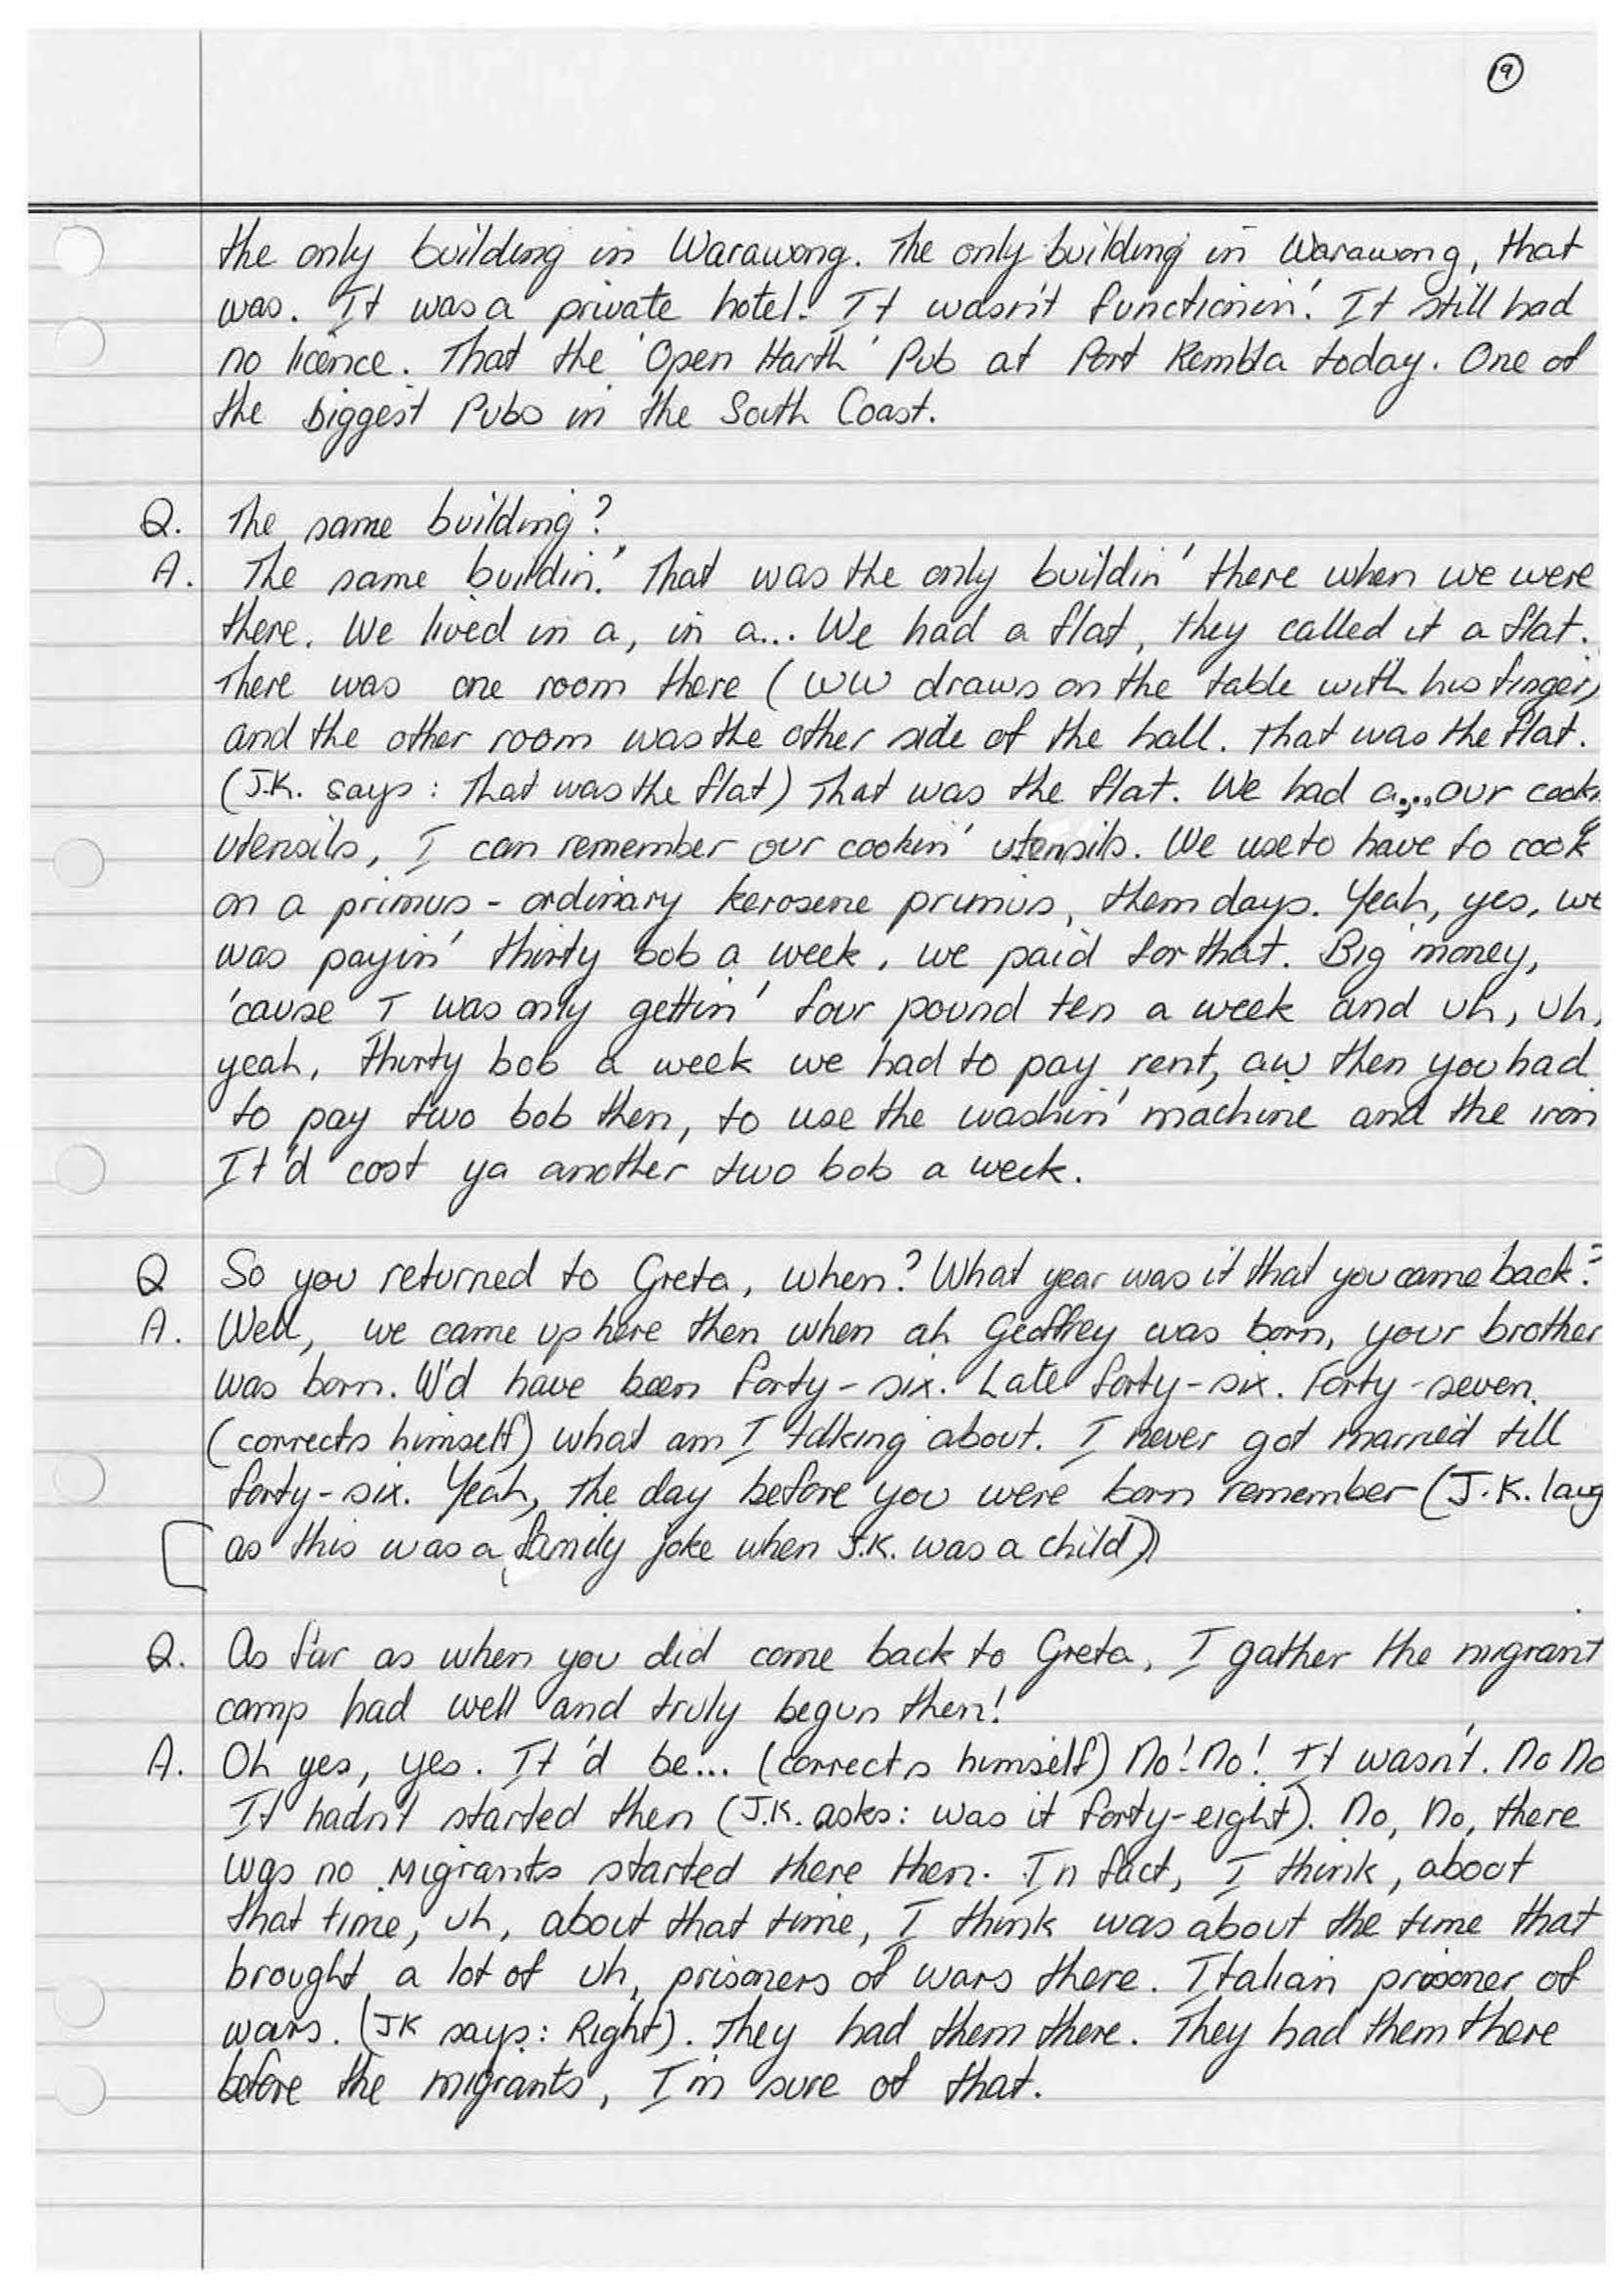 19
the only building in Warawong. The only building in Warawong, that
was. It was a private hotel. It wasn't functionin'. It still had
no licence. That the 'Open Harth' Pub at Port Kembla today. One of
the biggest Pubs in the South Coast.
Q. The same building?
A. The same buildin'. That was the only buildin' there when we were
there. We lived in a, in a... We had a flat, they called it a flat.
There was one room there (WW draws on the table with his finger)
and the other room was the other side of the hall. That was the flat.
(J.K. says: That was the flat) That was the flat. We had a... our cook
utensils, I can remember our cookin' utensils. We use to have to cook
on a primus - ordinary kerosene primus, them days. Yeah, yes, we
was payin' thirty bob a week, we paid for that. Big money,
'cause I was only gettin' four pound ten a week and uh, uh,
yeah, thirty bob a week we had to pay rent, aw then you had
to pay two bob then, to use the washin' machine and the iron
It'd cost ya another two bob a week.
Q So you returned to Greta, when? What year was it that you came back?
A. Well, we came up here then when ah Geoffrey was born, your brother
was born. W'd have been forty-six. Late forty-six. Forty-seven.
(corrects himself) what am I talking about. I never got married till
forty-six. Yeah, the day before you were born remember (J.K. laug
as this was a family joke when J.K. was a child))
Q. As far as when you did come back to Greta, I gather the migrant
camp had well and truly begun then!
A. Oh yes, yes. It'd be... (corrects himself) No! No! It wasn't. No No
It hadn't started then (J.K. asks: was it forty-eight). No, No, there
was no Migrants started there then. In fact, I think, about
that time, uh, about that time, I think was about the time that
brought a lot of uh, prisoners of wars there. Italian prisoner of
wars. (JK says: Right). They had them there. They had them there
before the migrants, I'm sure of that.